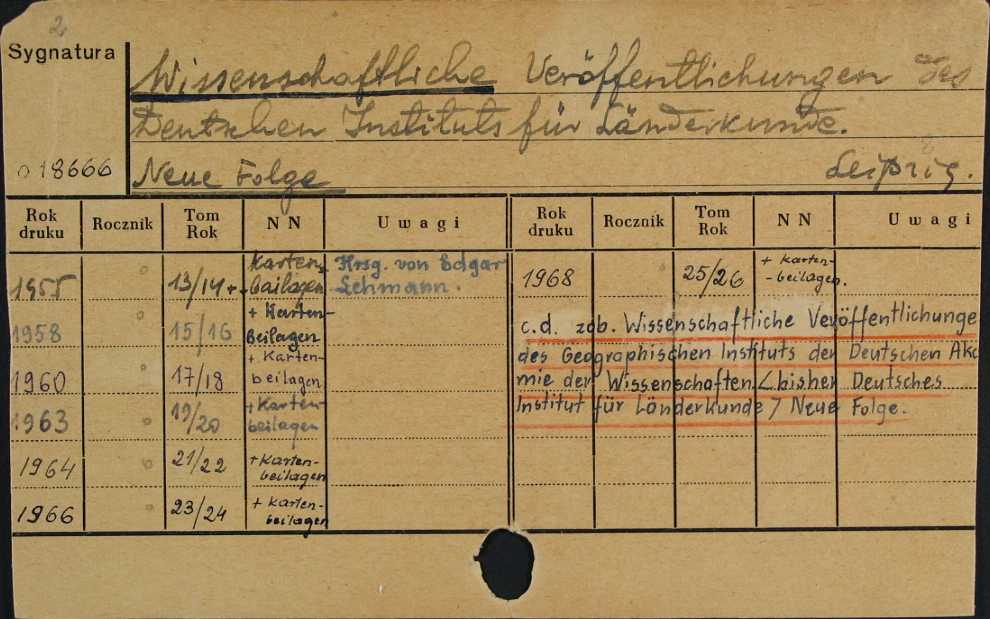 2
Sygnatura
Wissenschaftliche Veröffentlichungen des
Deutschen Instituts für Länderkunde.
018666 Neue Folge Leipzig.
Rok druku Rocznik Tom Rok NN Uwagi Rok druku Rocznik Tom Rok NN Uwagi
1955 0 13/14 + Karten-beilagen Hrsg. von Edgar Lehmann. 1968 25/26 + Karten--beilagen.
1958 0 15/16 + Karten-Beilagen
1960 0 17/18 + Karten-beilagen
1963 0 19/20 + Karten-beilagen
1964 0 21/22 + Karten-beilagen
1966 0 23/24 + Karten-beilagen
c.d. zob. Wissenschaftliche Veröffentlichunge
des Geographischen Instituts der Deutschen Aka
mie der Wissenschaften < bisher Deutsches
Institut für Länderkunde > Neue Folge.